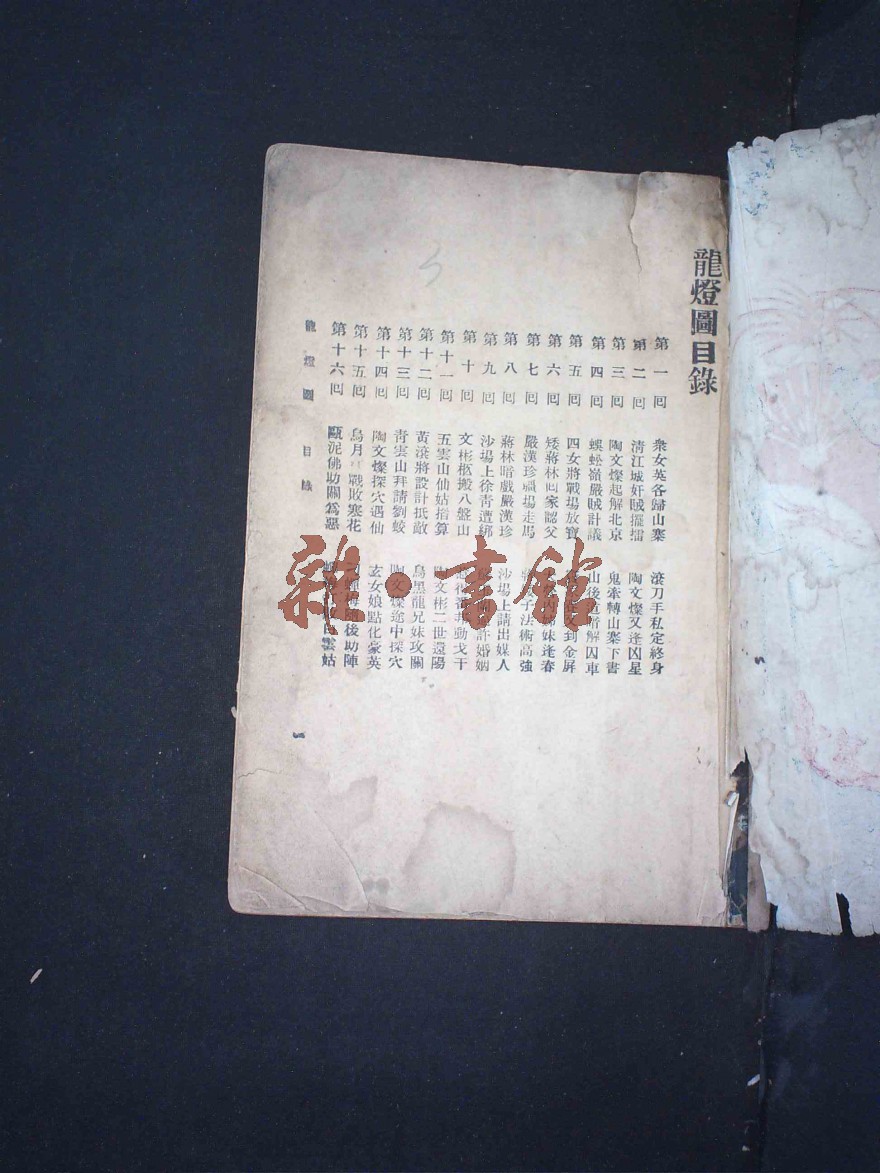 龍燈圖目錄
第一回 衆女英各歸山寨 滾刀手私定終身
第二回 清江城奸賊擺擂 陶文燦又逢凶星
第三回 陶文燦起解北京 鬼牽轉山寨下書
第四回 蜈蚣嶺嚴賊計議 山後 解囚車
第五回 四女將戰場放寶 到金屏
第六回 矮蔣林回家認父 妹逢春
第七回 嚴漢珍 場走馬 子法術高強
第八回 蔣林暗戲嚴漢珍 沙場上請出媒人
第九回 沙場上徐青遭綁 許婚姻
第十回 文彬柩搬八盤山 動戈干
第十一回 五雲山仙姑指算 陶文彬二世還陽
第十二回 黃滾將設計抵敵 烏黑龍兄妹攻關
第十三回 青雲山拜請劉蛟 陶文燦途中探穴
第十四回 陶文燦探穴遇仙 玄女娘點化豪英
第十五回 烏月 戰敗寒花 後助陣
第十六回 泥佛助關爲惡 雲姑
龍燈圖 目錄
雜·書館